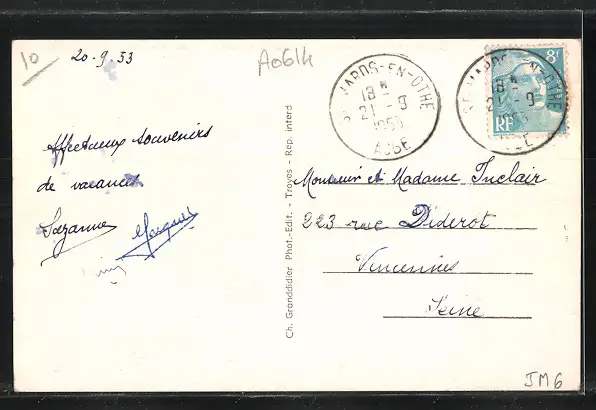 10
20-9.53
A0614
affectueux souvenirs
de vacances
Suzanne
Ch. Granddidier Phot.-Edit. - Troyes - Rep. interd
ST MARDS-EN-OTHE
18 H
21 - 9
1953
AUBE
8F
RF
Monsieur et Madame Inclair
223 rue Diderot
Vincennes
Seine
JM6